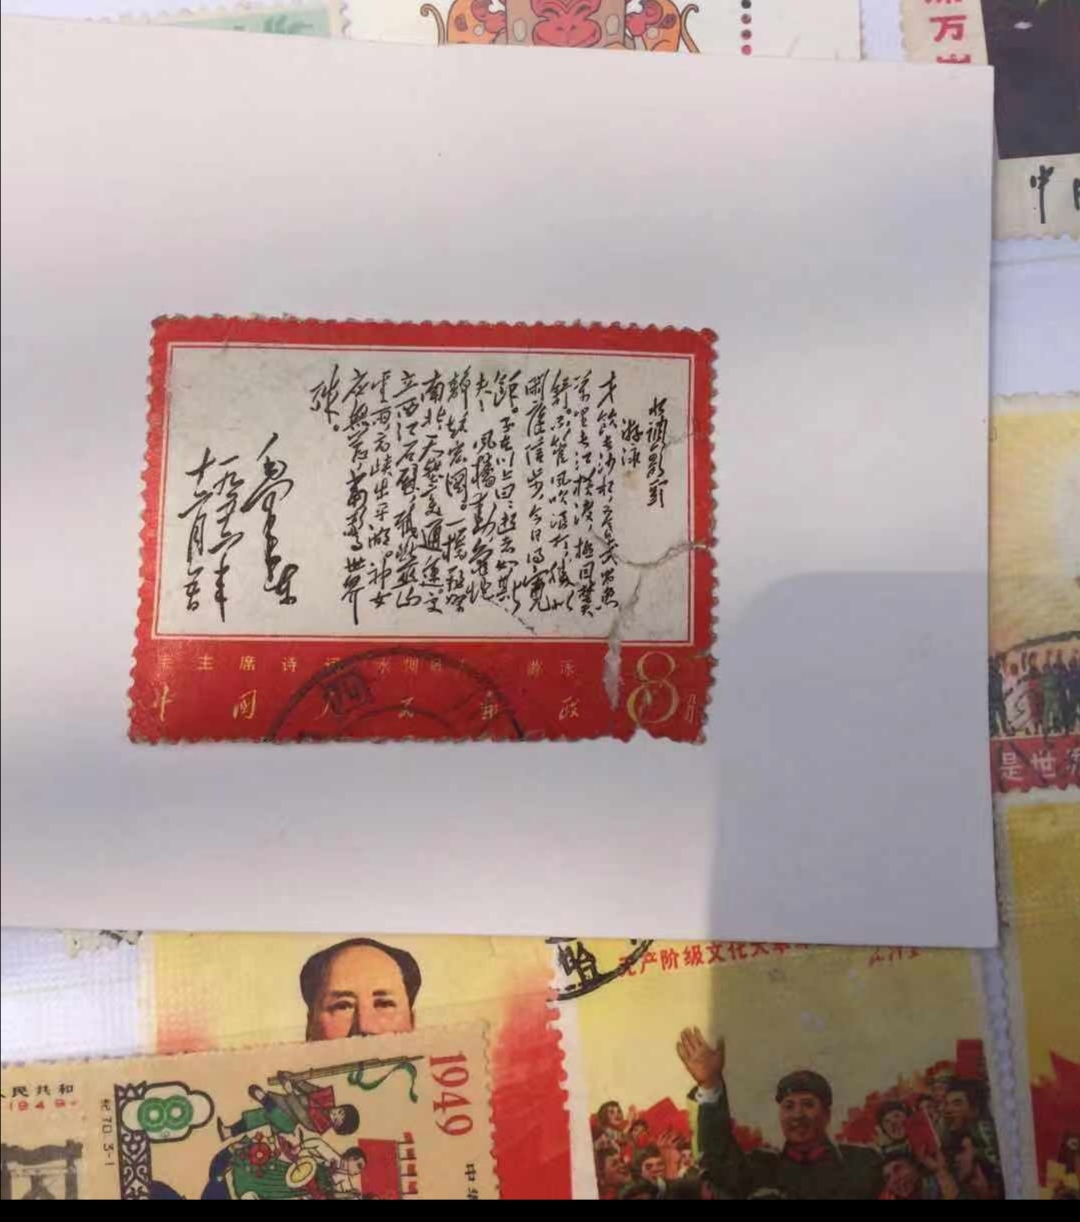 万
中
水調歌頭
游泳
才饮长沙水,又食武昌鱼。
万里长江横渡,极目楚天
舒。不管风吹浪打,胜似
闲庭信步,今日得宽
馀。子在川上曰:逝者如斯
夫!风樯动,龟蛇
静,起宏图。一桥飞架
南北,天堑变通途。更
立西江石壁,截断巫山
云雨,高峡出平湖。神女
应無恙,當驚世界
殊。
毛泽东
一九五六年
十二月五日
主席诗词 水调歌 游泳
中国人民邮政
8分
是世
哈
无产阶级文化大革
人民共和
1949
1949
中